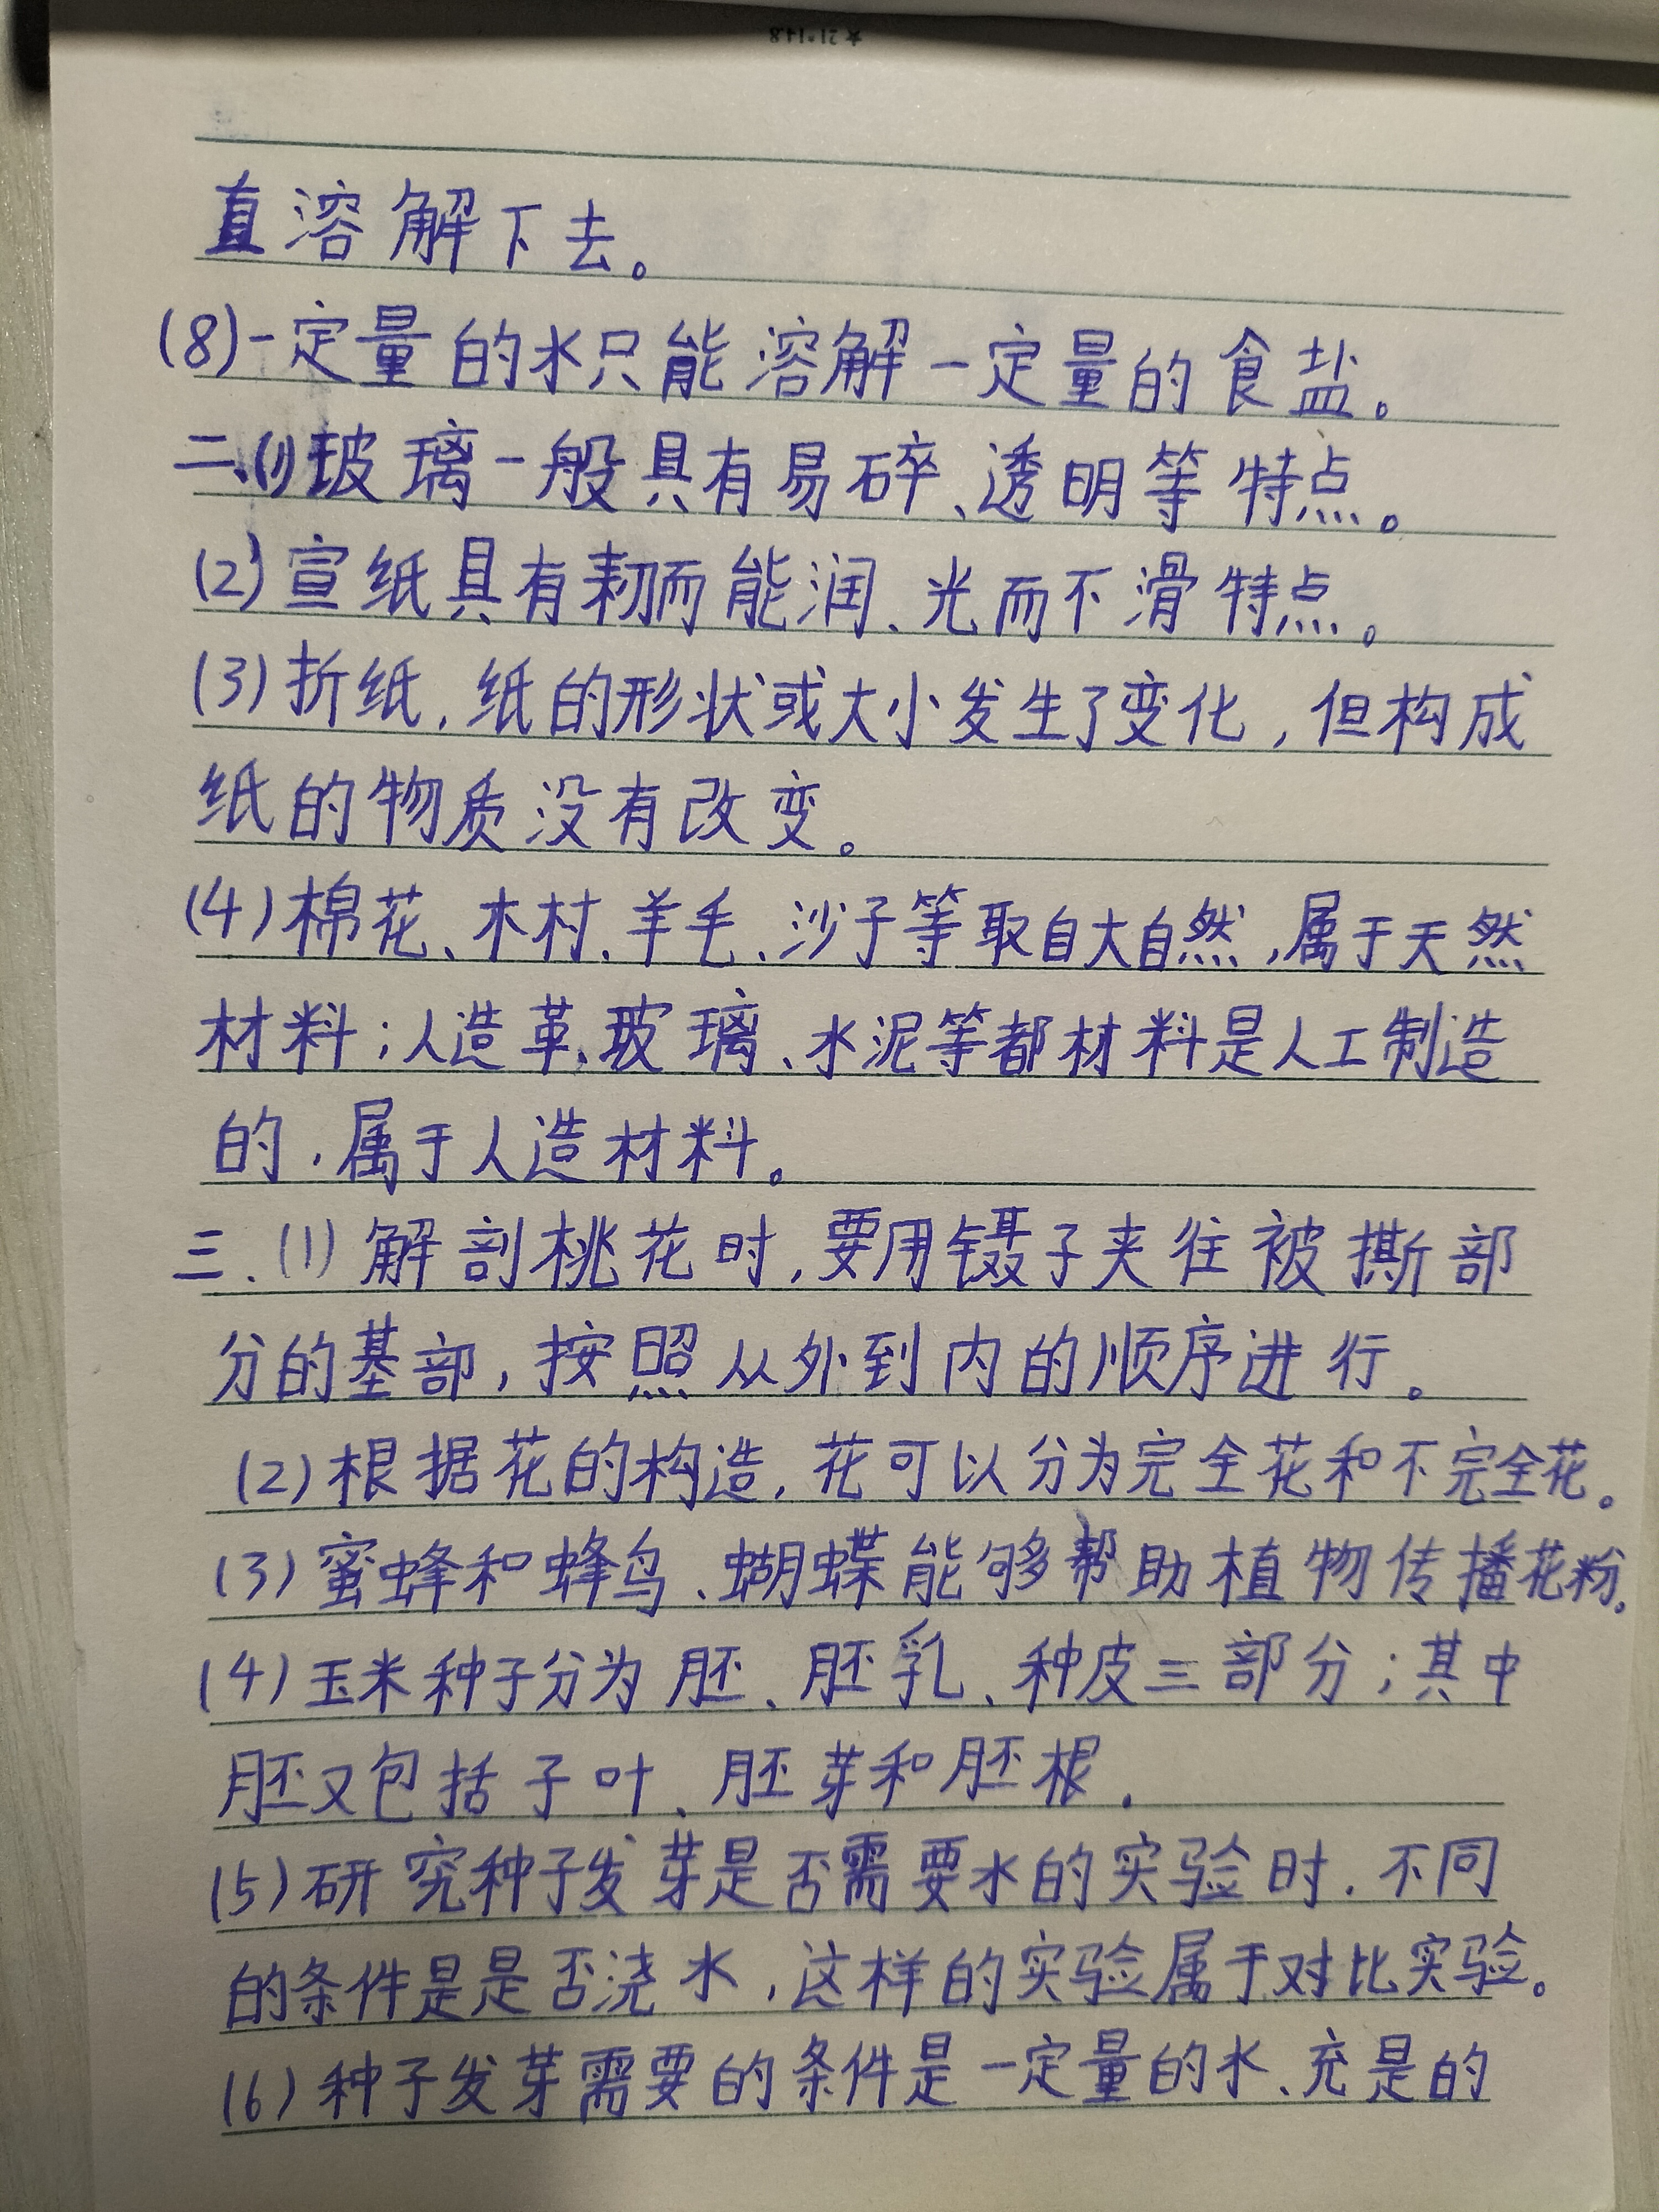 直溶解下去。
(8)一定量的水只能溶解一定量的食盐。
二、(1)玻璃一般具有易碎、透明等特点。
(2)宣纸具有韧而能润、光而不滑特点。
(3)折纸,纸的形状或大小发生了变化,但构成
纸的物质没有改变。
(4)棉花、木村、羊毛、沙子等取自大自然,属于天然
材料;人造革、玻璃、水泥等都材料是人工制造
的,属于人造材料。
三、(1)解剖桃花时,要用镊子夹往被撕部
分的基部,按照从外到内的顺序进行。
(2)根据花的构造,花可以分为完全花和不完全花。
(3)蜜蜂和蜂鸟、蝴蝶能够帮助植物传播花粉。
(4)玉米种子分为胚、胚乳、种皮三部分;其中
胚又包括子叶、胚芽和胚根.
(5)研究种子发芽是否需要水的实验时,不同
的条件是是否浇水,这样的实验属于对比实验。
(6)种子发芽需要的条件是一定量的水、充是的